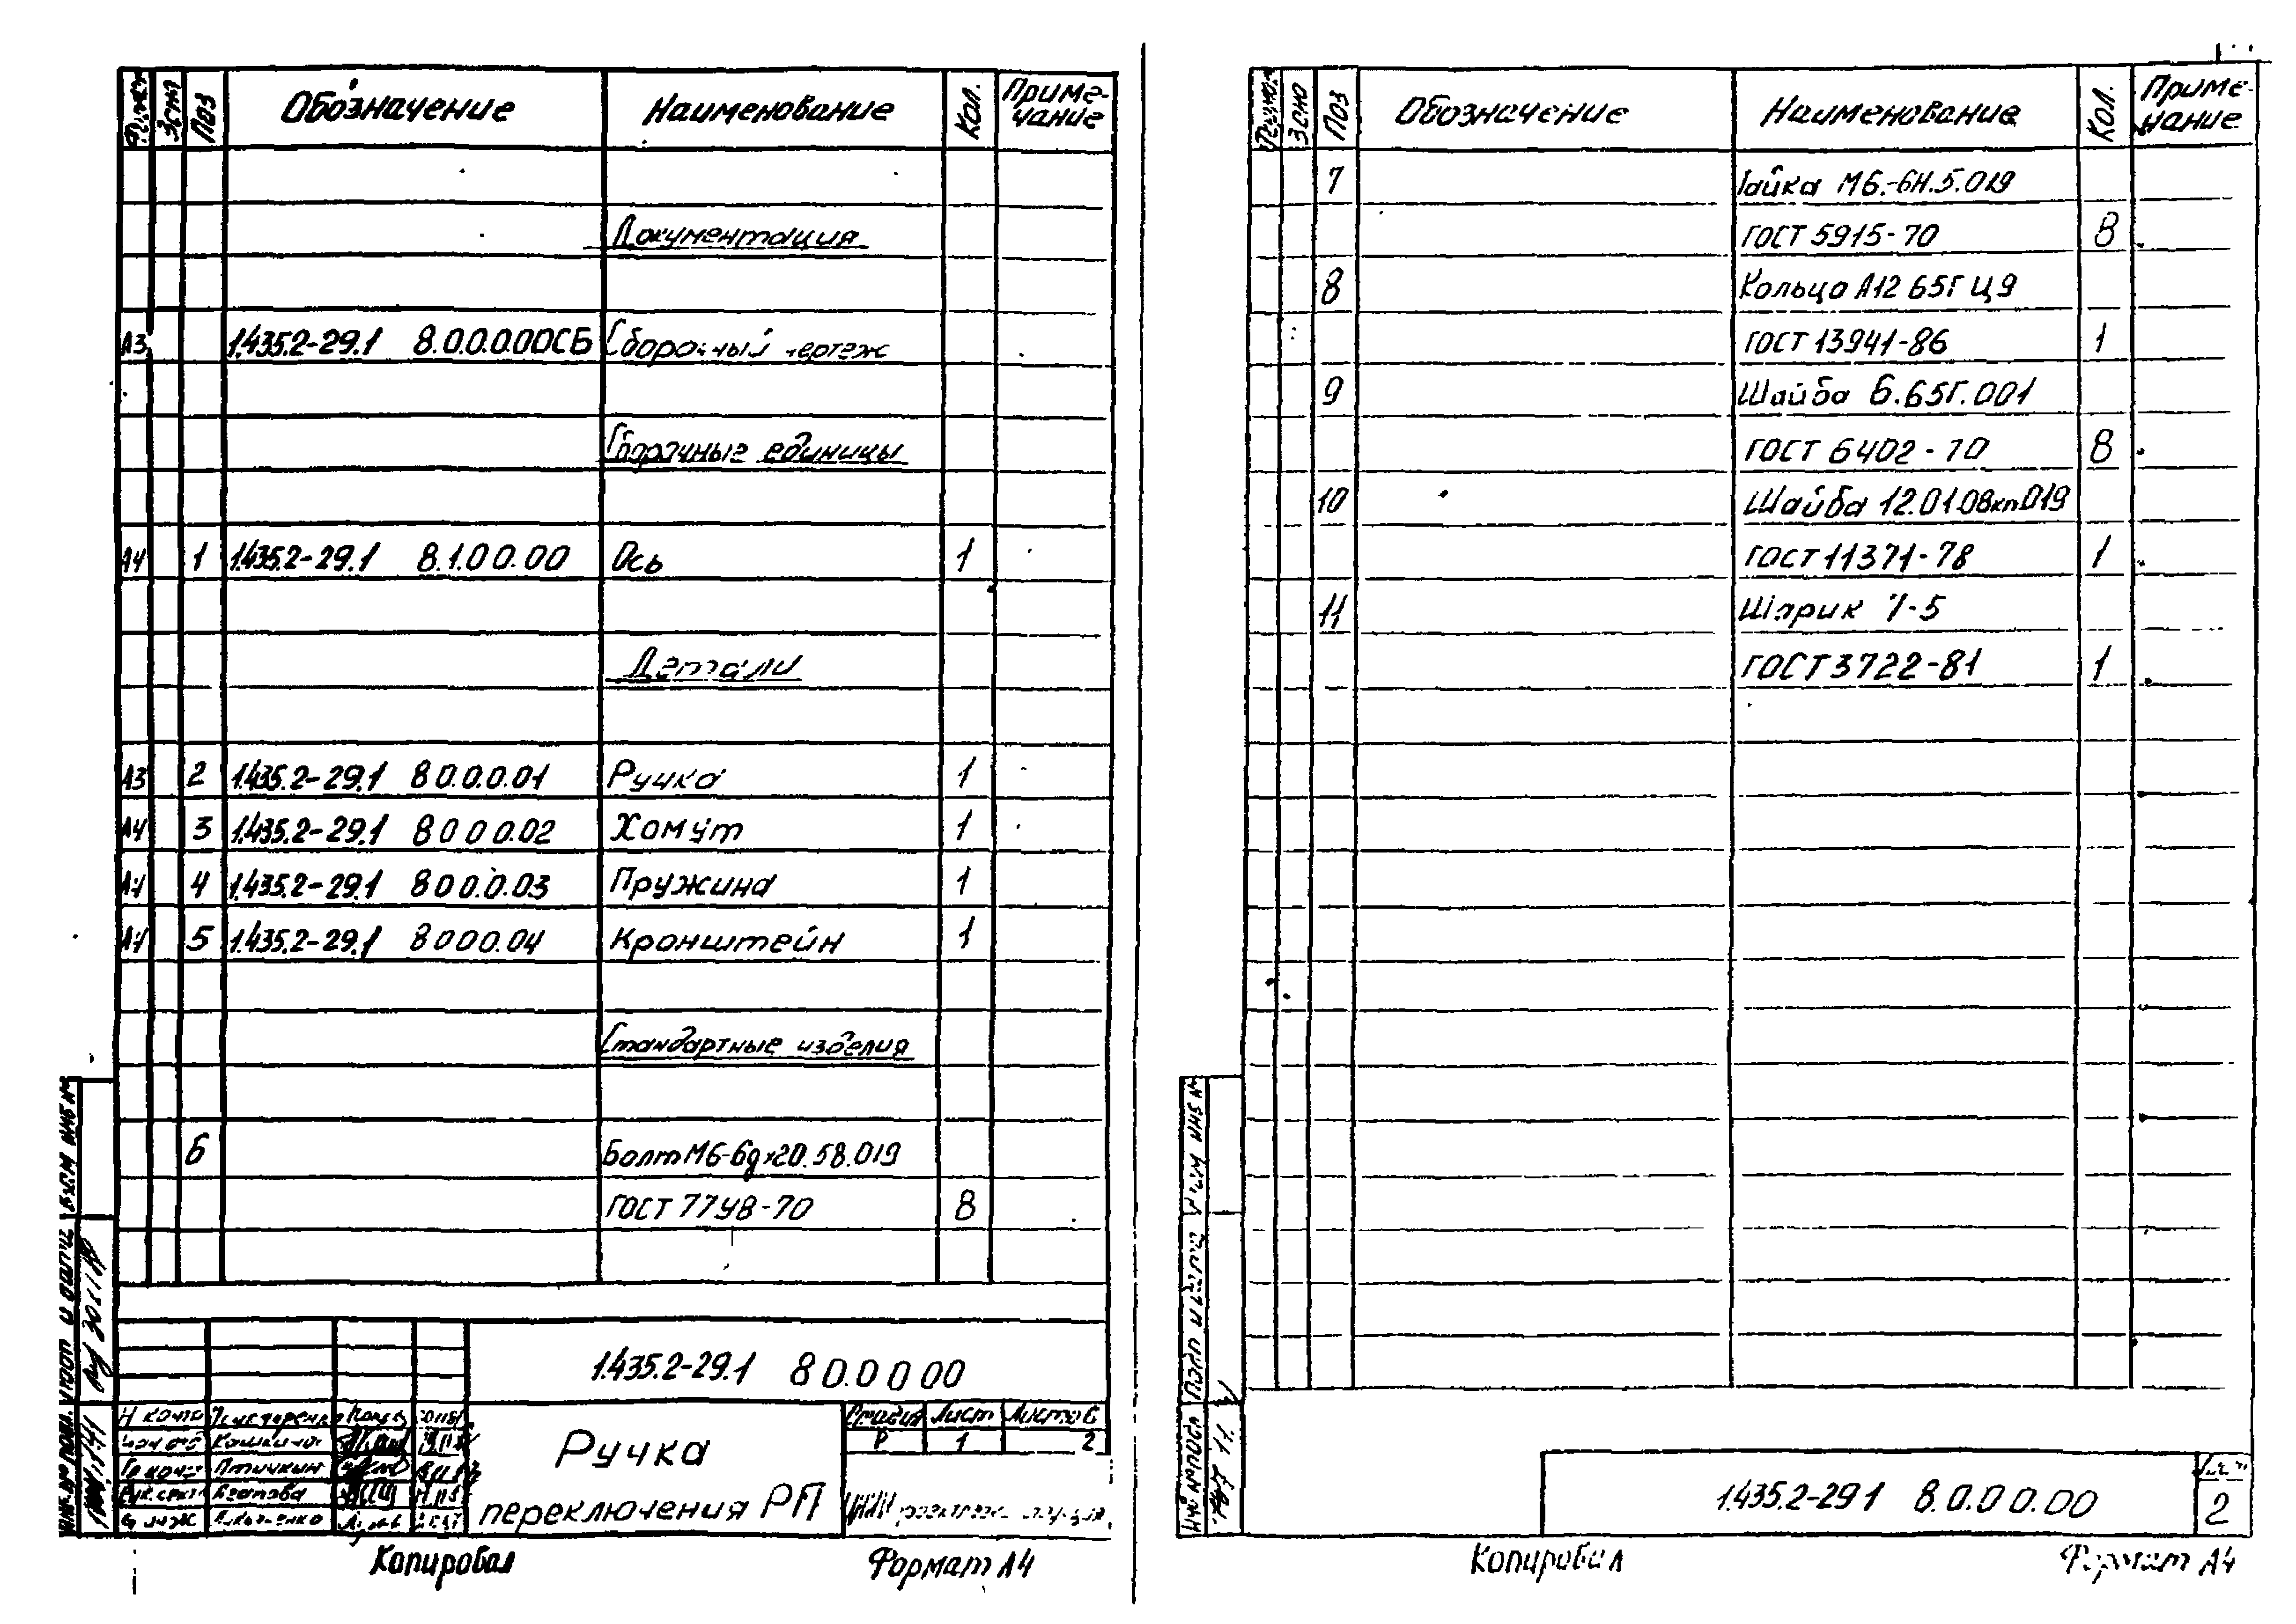 Формат Зона Поз Обозначение Наименование Кол. Приме-
чание
Документация
А3 1.435.2-29.1 8.0.0.0.00СБ Сборочный чертеж
Сборочные единицы
А4 1 1.435.2-29.1 8.1.0 0.00 Ось 1
Детали
А3 2 1.435.2-29.1 8 0.0.0.01 Ручка 1
А4 3 1.435.2-29.1 8 0 0 0.02 Хомут 1
А4 4 1.435.2-29.1 8 0 0.0.03 Пружина 1
А4 5 1.435.2-29.1 8 0 0 0.04 Кронштейн 1
Стандартные изделия
6 Болт М6-6gх20.58.019
ГОСТ 7798-70 8
1.435.2-29.1 8 0.0 0 00
Н контр
Птичкин
Стадия Лист Листов
Р 1 2
Ручка
переключения РП
Копировал Формат А4
Взам инв №
Подп и дата
Инв. № подл.
Формат Зона Поз Обозначение Наименование Кол. Приме-
чание
7 Гайка М6.-6Н.5.019
ГОСТ 5915-70 8
8 Кольцо А12 65Г Ц9
ГОСТ 13941-86 1
9 Шайба 6.65Г.001
ГОСТ 6402-70 8
10 Шайба 12.01.08кп019
ГОСТ 11371-78 1
11 Шарик 1-5
ГОСТ 3722-81 1
Взам инв №
Подп и дата
Инв № подл
1.435.2-29 1 8.0.0 0.00
Лист
2
Копировал Формат А4